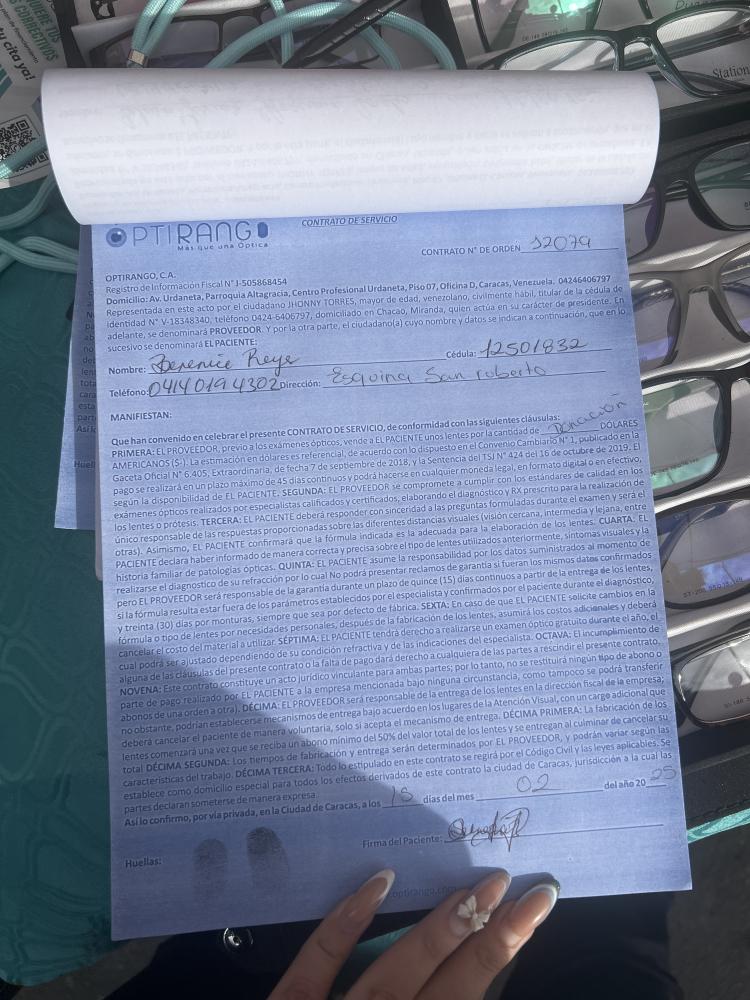 OPTIRANGO
Más que una Óptica
CONTRATO DE SERVICIO
CONTRATO N° DE ORDEN 12079
OPTIRANGO, C.A.
Registro de Información Fiscal N° J-505868454
Domicilio: Av. Urdaneta, Parroquia Altagracia, Centro Profesional Urdaneta, Piso 07, Oficina D, Caracas, Venezuela. 04246406797
Representada en este acto por el ciudadano JHONNY TORRES, mayor de edad, venezolano, civilmente hábil, titular de la cédula de
identidad N° V-18348340, teléfono 0424-6406797, domiciliado en Chacao, Miranda, quien actúa en su carácter de presidente. En
adelante, se denominará PROVEEDOR. Y por la otra parte, el ciudadano(a) cuyo nombre y datos se indican a continuación, que en lo
sucesivo se denominará EL PACIENTE:
Nombre: Berenice Reye Cédula: 12501832
Teléfono: 0414 019 4302 Dirección: Esquina San roberto
MANIFIESTAN:
Que han convenido en celebrar el presente CONTRATO DE SERVICIO, de conformidad con las siguientes cláusulas:
PRIMERA: EL PROVEEDOR, previo a los exámenes ópticos, vende a EL PACIENTE unos lentes por la cantidad de Donación DÓLARES
AMERICANOS ($-). La estimación en dólares es referencial, de acuerdo con lo dispuesto en el Convenio Cambiario N° 1, publicado en la
Gaceta Oficial N° 6.405, Extraordinaria, de fecha 7 de septiembre de 2018, y la Sentencia del TSJ N° 424 del 16 de octubre de 2019. El
pago se realizará en un plazo máximo de 45 días continuos y podrá hacerse en cualquier moneda legal, en formato digital o en efectivo,
según la disponibilidad de EL PACIENTE. SEGUNDA: EL PROVEEDOR se compromete a cumplir con los estándares de calidad en los
exámenes ópticos realizados por especialistas calificados y certificados, elaborando el diagnóstico y RX prescrito para la realización de
los lentes o prótesis. TERCERA: EL PACIENTE deberá responder con sinceridad a las preguntas formuladas durante el examen y será el
único responsable de las respuestas proporcionadas sobre las diferentes distancias visuales (visión cercana, intermedia y lejana, entre
otras). Asimismo, EL PACIENTE confirmará que la fórmula indicada es la adecuada para la elaboración de los lentes. CUARTA: EL
PACIENTE declara haber informado de manera correcta y precisa sobre el tipo de lentes utilizados anteriormente, síntomas visuales y la
historia familiar de patologías ópticas. QUINTA: EL PACIENTE asume la responsabilidad por los datos suministrados al momento de
realizarse el diagnostico de su refracción por lo cual No podrá presentar reclamos de garantía si fueran los mismos datos confirmados
pero EL PROVEEDOR será responsable de la garantía durante un plazo de quince (15) días continuos a partir de la entrega de los lentes,
si la fórmula resulta estar fuera de los parámetros establecidos por el especialista y confirmados por el paciente durante el diagnóstico,
y treinta (30) días por monturas, siempre que sea por defecto de fábrica. SEXTA: En caso de que EL PACIENTE solicite cambios en la
fórmula o tipo de lentes por necesidades personales, después de la fabricación de los lentes, asumirá los costos adicionales y deberá
cancelar el costo del material a utilizar. SÉPTIMA: EL PACIENTE tendrá derecho a realizarse un examen óptico gratuito durante el año, el
cual podrá ser ajustado dependiendo de su condición refractiva y de las indicaciones del especialista. OCTAVA: El incumplimiento de
alguna de las cláusulas del presente contrato o la falta de pago dará derecho a cualquiera de las partes a rescindir el presente contrato.
NOVENA: Este contrato constituye un acto jurídico vinculante para ambas partes; por lo tanto, no se restituirá ningún tipo de abono o
parte de pago realizado por EL PACIENTE a la empresa mencionada bajo ninguna circunstancia, como tampoco se podrá transferir
abonos de una orden a otra). DÉCIMA: EL PROVEEDOR será responsable de la entrega de los lentes en la dirección fiscal de la empresa;
no obstante, podrían establecerse mecanismos de entrega bajo acuerdo en los lugares de la Atención Visual, con un cargo adicional que
deberá cancelar el paciente de manera voluntaria, solo si acepta el mecanismo de entrega. DÉCIMA PRIMERA: La fabricación de los
lentes comenzará una vez que se reciba un abono mínimo del 50% del valor total de los lentes y se entregan al culminar de cancelar su
total DÉCIMA SEGUNDA: Los tiempos de fabricación y entrega serán determinados por EL PROVEEDOR, y podrán variar según las
características del trabajo. DÉCIMA TERCERA: Todo lo estipulado en este contrato se regirá por el Código Civil y las leyes aplicables. Se
establece como domicilio especial para todos los efectos derivados de este contrato la ciudad de Caracas, jurisdicción a la cual las
partes declaran someterse de manera expresa.
Así lo confirmo, por vía privada, en la Ciudad de Caracas, a los 15 días del mes 02 del año 20 25
Firma del Paciente:
Huellas:
optirango.com